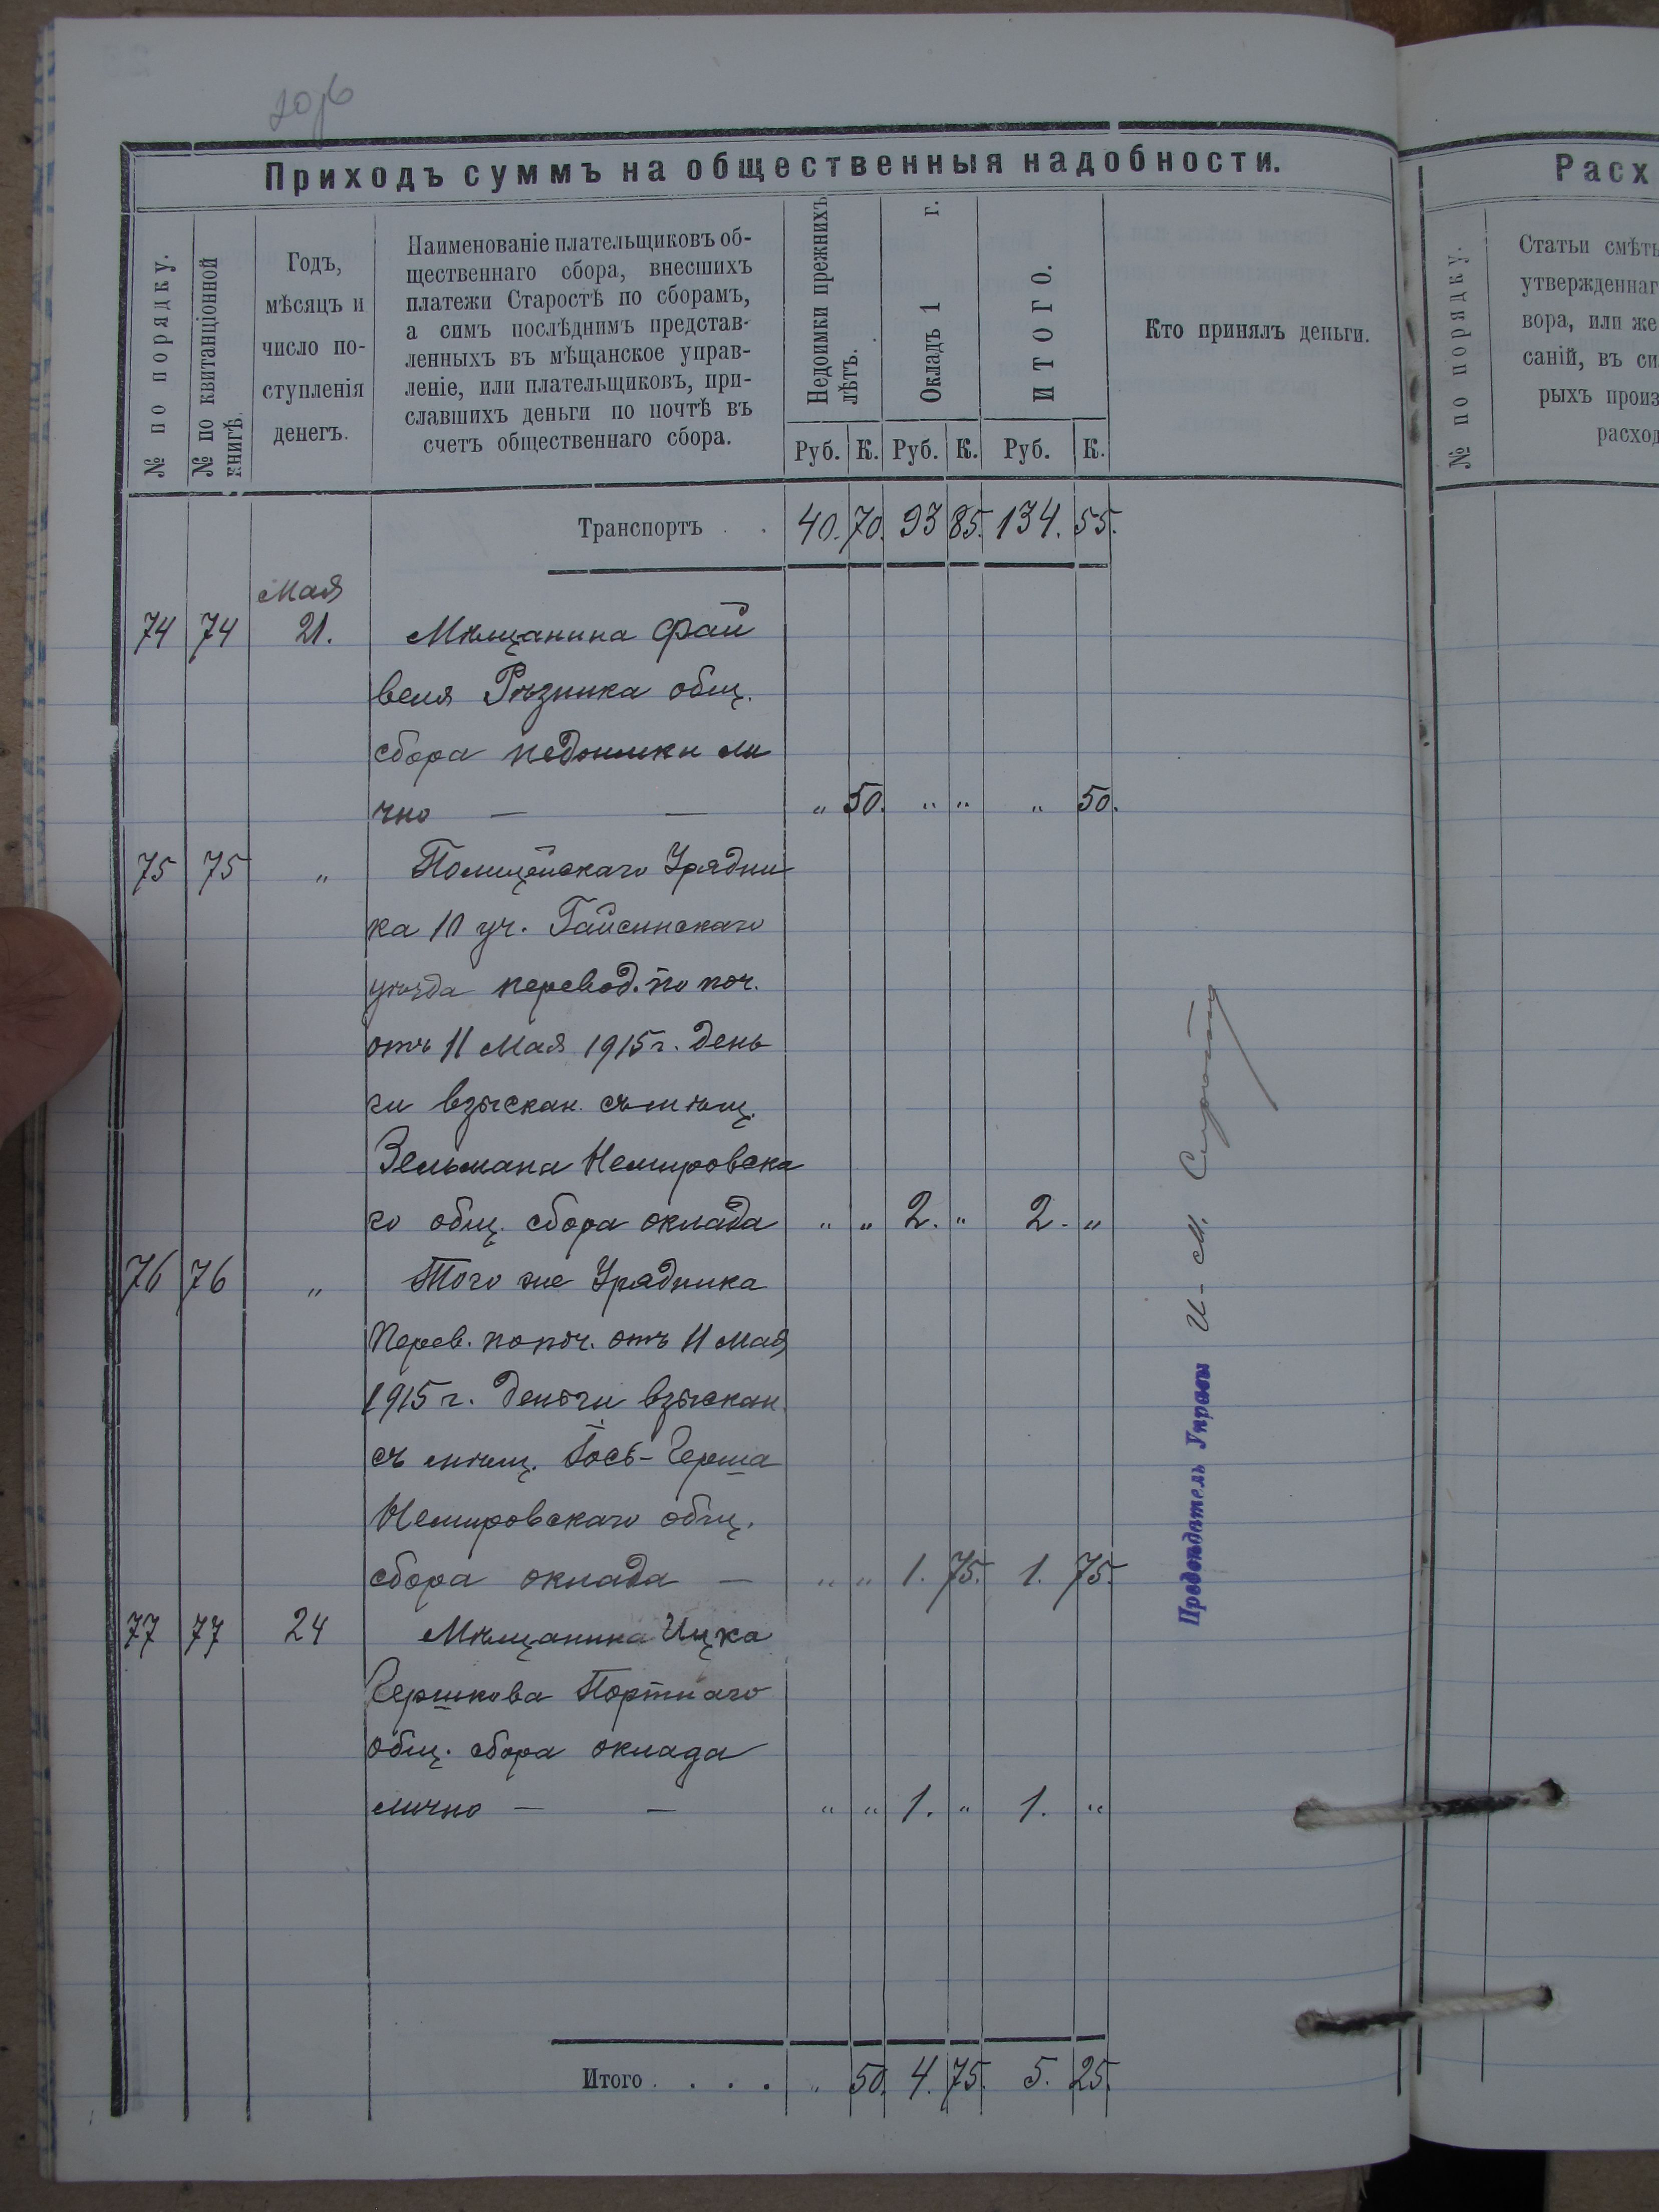 20об
Приходъ суммъ на общественныя надобности.
№ по порядку.
№ по квитанціонной
книгѣ.
Годъ,
мѣсяцъ и
число по-
ступленія
денегъ.
Наименованіе плательщиковъ об-
щественнаго сбора, внесшихъ
платежи Старостѣ по сборамъ,
а симъ послѣднимъ представ-
ленныхъ въ мѣщанское управ-
леніе, или плательщиковъ, при-
славшихъ деньги по почтѣ въ
счетъ общественнаго сбора.
Недоимки прежнихъ
лѣтъ.
Окладъ 1 г.
ИТОГО.
Кто принялъ деньги.
Руб. К. Руб. К. Руб. К.
Транспортъ . . 40. 70. 93 85. 134. 55.
Мая
74 74 21. Мѣщанина Фай
веля Рѣзника общ.
сбора недоимки ли
чно — — " 50. " " " 50.
75 75 " Полицейскаго Урядни
ка 10 уч. Гайсинскаго
уѣзда перевод. по поч.
отъ 11 Мая 1915 г. День
ги взыскан. съ мѣщ.
Зельмана Немировска
го общ. сбора оклада " " 2. " 2. "
76 76 " Того же Урядника
перев. по поч. отъ 11 Мая
1915 г. деньги взыскан.
съ мѣщ. Іось-Герша
Немировскаго общ.
сбора оклада — " " 1. 75. 1. 75.
77 77 24 Мѣщанина Ицка
Гершкова Портнаго
общ. сбора оклада
лично — — " " 1. " 1. "
Итого . . . . " 50. 4. 75. 5. 25.
Предсѣдатель Управы И. М.
Расх
№ по порядку.
Статьи смѣть
утвержденнаг
вора, или же
саній, въ си
рыхъ произ
расход